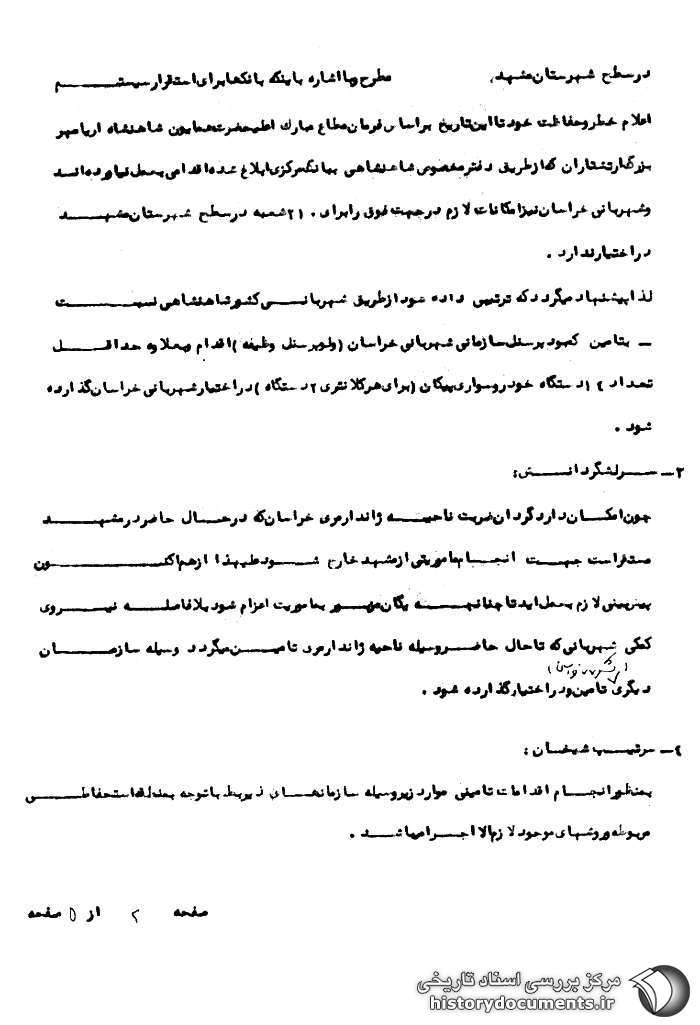 در سطح شهرستان مشهد، مطرح و با اشاره باینکه بانکها برای استقرار سیستم
اعلام خطر و حفاظت خود تا این تاریخ براساس فرمان مطاع مبارک اعلیحضرت همایون شاهنشاه اریامهر
بزرگ ارتشتاران که از طریق دفتر مخصوص شاهنشاهی ببانک مرکزی ابلاغ شده اقدامی بعمل نیاورده اند
و شهربانی خراسان نیز امکانات لازم در جهت فوق را برای ۲۱۰ شعبه در سطح شهرستان مشهد
در اختیار ندارد .
لذا پیشنهاد میگردد که ترتیبی داده شود از طریق شهربانی کشور شاهنشاهی نسبت
ـ بتامین کمبود پرسنل سازمانی شهربانی خراسان (ولو پرسنل وظیفه) اقدام و بعلاوه حداقل
تعداد ۱۲ دستگاه خودرو سواری پیکان (برای هر کلانتری ۲ دستگاه) در اختیار شهربانی خراسان گذارده
شود .
۲ـ سرلشگر دانش :
چون امکان دارد گردان ضربت ناحیه ژاندارمری خراسان که در حال حاضر در مشهد
مستقر است جهت انجام ماموریتی از مشهد خارج شود علیهذا از هم اکنون
پیش بینی لازم بعمل اید تا چنانچه یگان مزبور بماموریت اعزام شود بلافاصله نیروی
کمکی شهربانی که تا حال حاضر وسیله ناحیه ژاندارمری تامین میگردد وسیله سازمان
دیگری تامین و در اختیار گذارده شود .
۴ـ سرتیپ شیخان :
بمنظور انجام اقدامات تامینی موارد زیر وسیله سازمانهای ذیربط با توجه به مدلهای حفاظتی
مربوطه و روشهای موجود لازم الاجرا میباشد .
صفحه ۲ از ۵ صفحه
مرکز بررسی اسناد تاریخی
historydocuments.ir